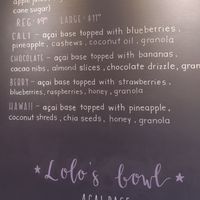 cane sugar)
REG: $9" LARGE - $11"
CALI - açai base topped with blueberries,
pineapple, cashews, coconut oil, granola
CHOCOLATE - açai base topped with bananas,
cacao nibs, almond slices, chocolate drizzle, gran
BERRY - açai base topped with strawberries,
blueberries, raspberries, honey, granola
HAWAII - açai base topped with pineapple,
coconut shreds, chia seeds, honey, granola
*Lolo's bowl*
ACAI BASE